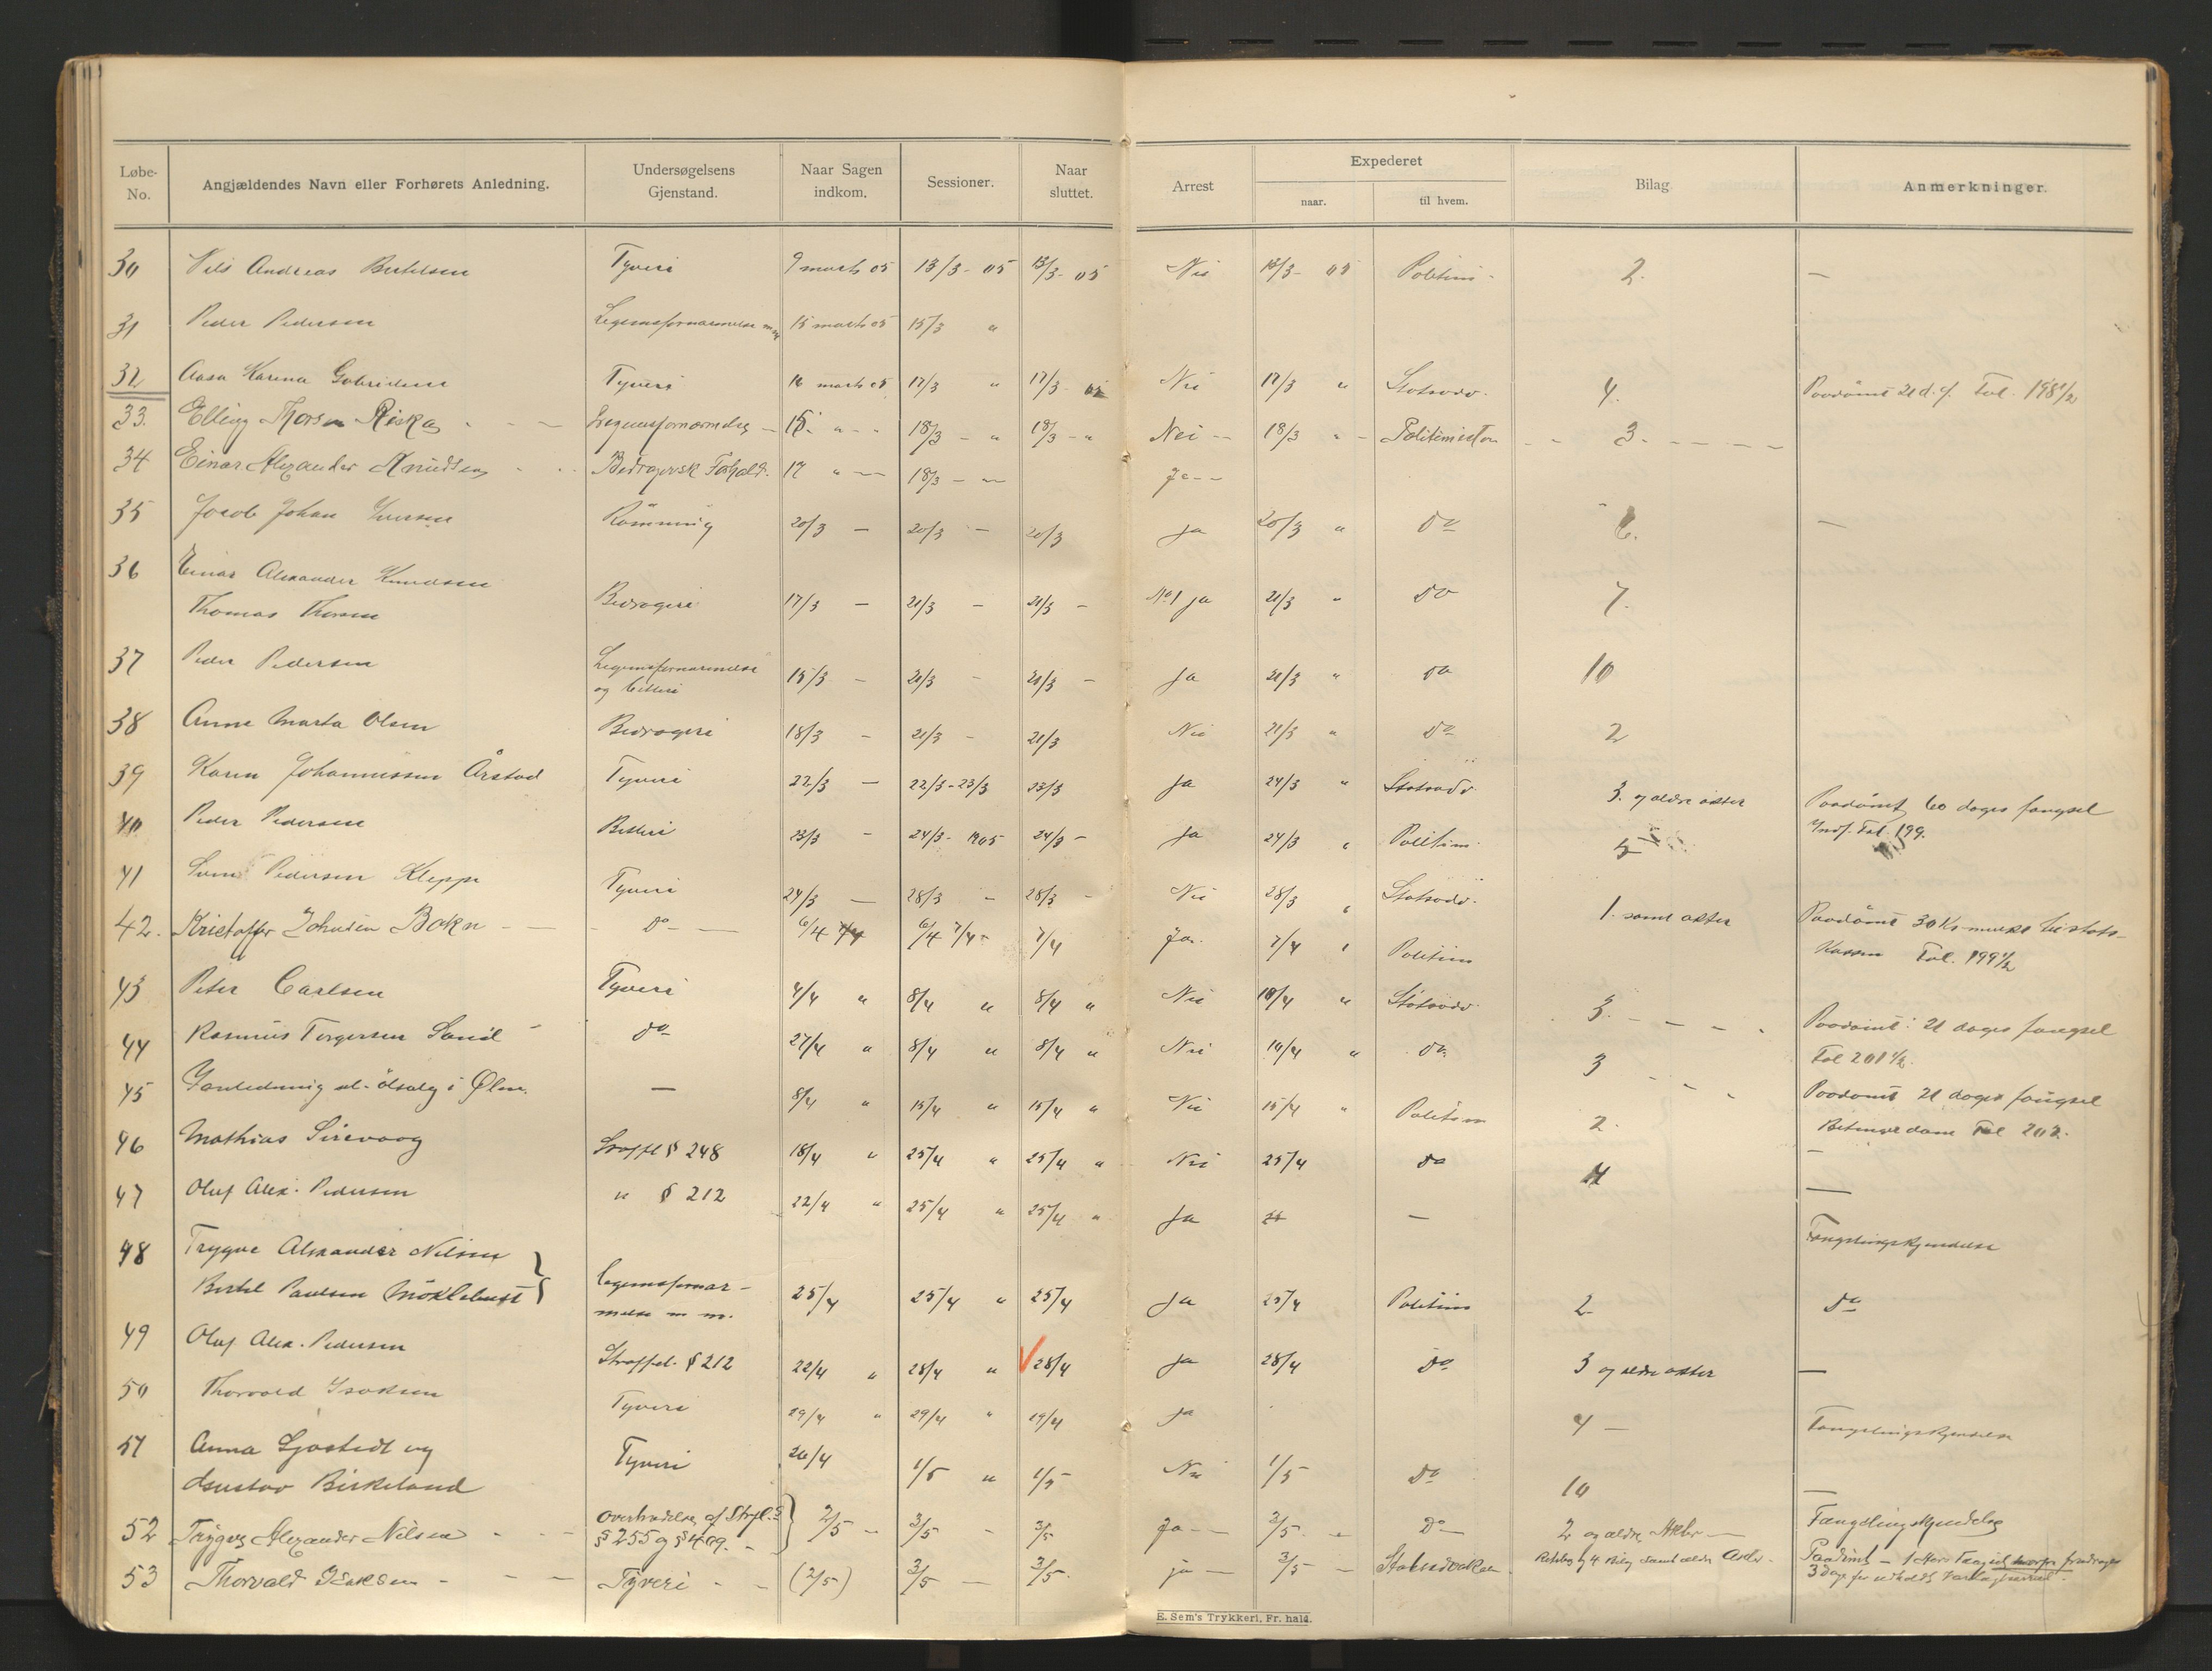 Løbe-No. Angjældendes Navn eller Forhørets Anledning. Undersøgelsens Gjenstand. Naar Sagen indkom. Sessioner. Naar sluttet. Arrest Expederet naar. til hvem. Bilag Anmerkninger.
30 Nils Andreas Bertelsen Tyveri 9 marts 05 13/3 - 05 13/3 - 05 Nei 13/3 - 05 Politim. 2. —
31 Peder Pedersen Legemsfornærmelse 15 marts 05 15/3 "
32 Aasa Karina Gabrielsen Tyveri 16 marts 05 17/3 " 17/3 - 05 Nei 17/3 " Statsadv. 4. Paadømt 21 d. f. Fol. 198 1/2
33. Elling Thorsen Riska Legemsfornærmelse — 15. " - - 18/3 - " 18/3 - " Nei - - 18/3 " - Politimesteren 3.
34 Einar Alexander Knudsen Bedragersk Forhold. 17 " — 18/3 - — Ja - -
35 Jacob Johan Iversen Rømning 20/3 — 20/3 — 20/3 ja 20/3 " Do 6. —
36 Einar Alexander Knudsen
Thomas Thorsen Bedrageri 17/3 — 21/3 — 21/3 — No 1 ja 21/3 " Do 7.
37 Peder Pedersen Legemsfornærmelse
og betleri 15/3 — 21/3 - 21/3 — ja 21/3 " Do 10
38 Anne Marta Olsen Bedrageri 18/3 - 21/3 - 21/3 Nei 21/3 " Do 2
39 Karen Johannessen Årstad Tyveri 22/3 — 22/3 - 23/3 23/3 ja 24/3 " Statsadv. 3. og ældre akter Paadømt 60 dages fængsel
Fol. 199.
40 Peder Pedersen Betleri 23/3 - 24/3 - 1905 24/3 - ja 24/3 " Politim.
41 Pedersen Kleppe Tyveri 24/3 — 28/3 - 28/3 - Nei 28/3 " Statsadv. 1. samt akter Paadømt 30 Kr. til Stats-
kassen Fol. 199 1/2
42. Kristoffer Johnsen Bokn - — Do — 6/4 6/4 7/4 - 7/4 Ja. 7/4 " Politim
43 Peter Carlsen Tyveri 4/4 " 8/4 " 8/4 " Nei 10/4 " Statsadv. 3. Paadømt: 21 dages fængsel
Fol 201 1/2.
44 Rasmus Torgersen Sand Do 27/4 " 8/4 " 8/4 " Nei 10/4 " Do 3 Paadømt 21 dages fængsel
Betinget dom Fol 202.
45 I anledning ul. ølsalg i Ølen. — 8/4 " 15/4 " 15/4 " Nei 15/4 " Politim 2. —
46 Mathias Sirevaag Straffl § 248 18/4 " 25/4 " 25/4 " Nei 25/4 Do 4 —
47 Oluf Alex. Pedersen " § 212 22/4 " 25/4 " 25/4 " ja — Fængslingskjendelse
48 Trygve Alexander Nilsen
Bertel Paulsen Möklebust Legemsfornær-
melse m m. 25/4 25/4 " 25/4 ja 25/4 Politim 2 Do
49 Oluf Alex. Pedersen Straffel. § 212 22/4 " 28/4 " 28/4 ja 28/4 Do 3 og ældre akter —
50 Thorvald Isaksen Tyveri 29/4 " 29/4 " 29/4 ja 4 — Fængslingskjendelse
51 Anna Sjøstedt og
Gustav Birkeland Tyveri 26/4 1/5 " 1/5 Nei 1/5 Do 10 —
52 Trygve Alexander Nilsen Overtrædelse af Strfl.
§ 255 og § 409. 2/5 - 3/5 - 3/5 Ja - - 3/5 - Do — 2 og ældre Akter — Fængslingskjendelse
53 Thorvald Isaksen - — — Tyveri - - (2/5) 3/5 — 3/5. ja — 3/5 — Statsadvokaten 4 Bilag samt ældre Akter - Paadømt -
3 Dage for udholdt Varetægtsarrest.
E. Sem's Trykkeri, Fr.hald.